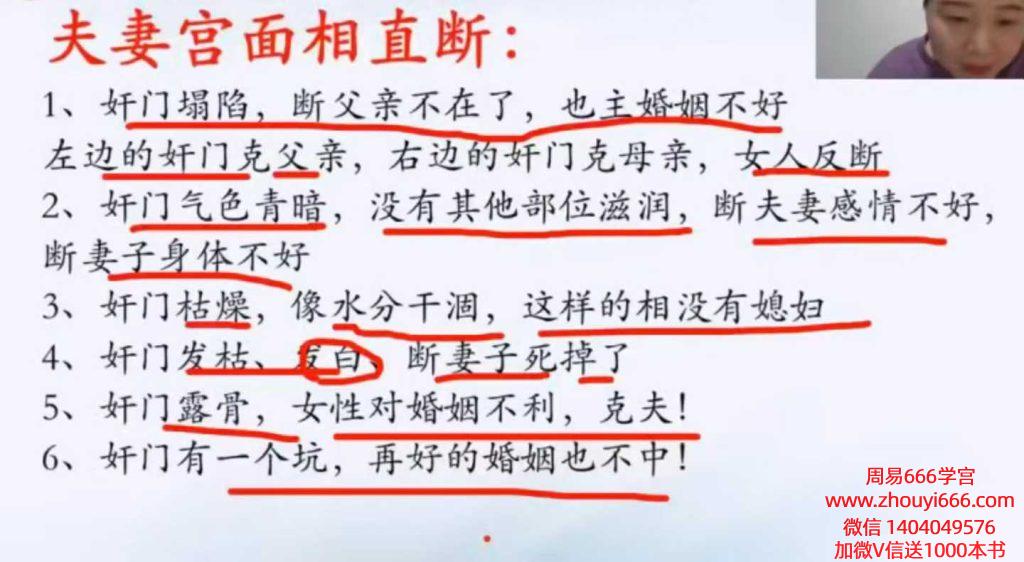 夫妻宫面相直断：
1、奸门塌陷，断父亲不在了，也主婚姻不好
左边的奸门克父亲，右边的奸门克母亲，女人反断
2、奸门气色青暗，没有其他部位滋润，断夫妻感情不好，
断妻子身体不好
3、奸门枯燥，像水分干涸，这样的相没有媳妇
4、奸门发枯、发白、断妻子死掉了
5、奸门露骨，女性对婚姻不利，克夫！
6、奸门有一个坑，再好的婚姻也不中！
周易666学宫
www.zhouyi666.com
微信 1404049576
加微V信送1000本书